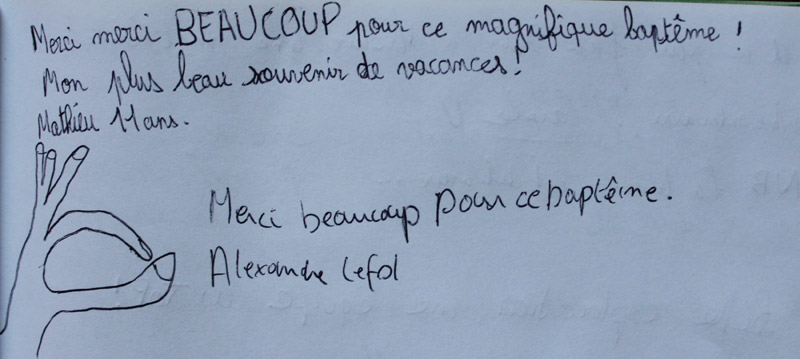 Merci merci BEAUCOUP pour ce magnifique baptême !
Mon plus beau souvenir de vacances !
Mathieu 11ans.
Merci beaucoup pour ce baptême.
Alexandre Lefol